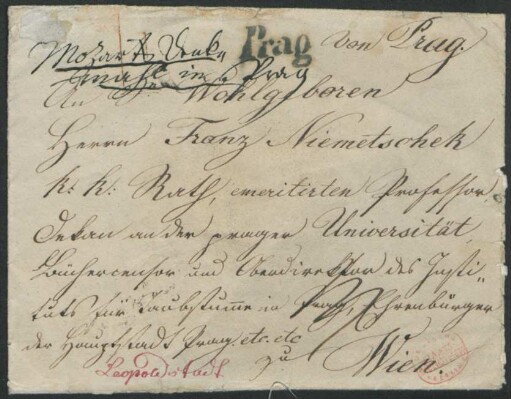 Mozart's Denk- Prag von Prag.
mahl in Prag
An Sr Wohlgeboren
Herrn Franz Niemetschek
k: k: Rath, emeritirten Professor,
Dekan an der prager Universität,
Büchercensor und Oberdirektor des Insti-
tuts für Taubstumme in Prag, Ehrenbürger
der Hauptstadt Prag. etc. etc
zu Wien.
Leopoldstadt